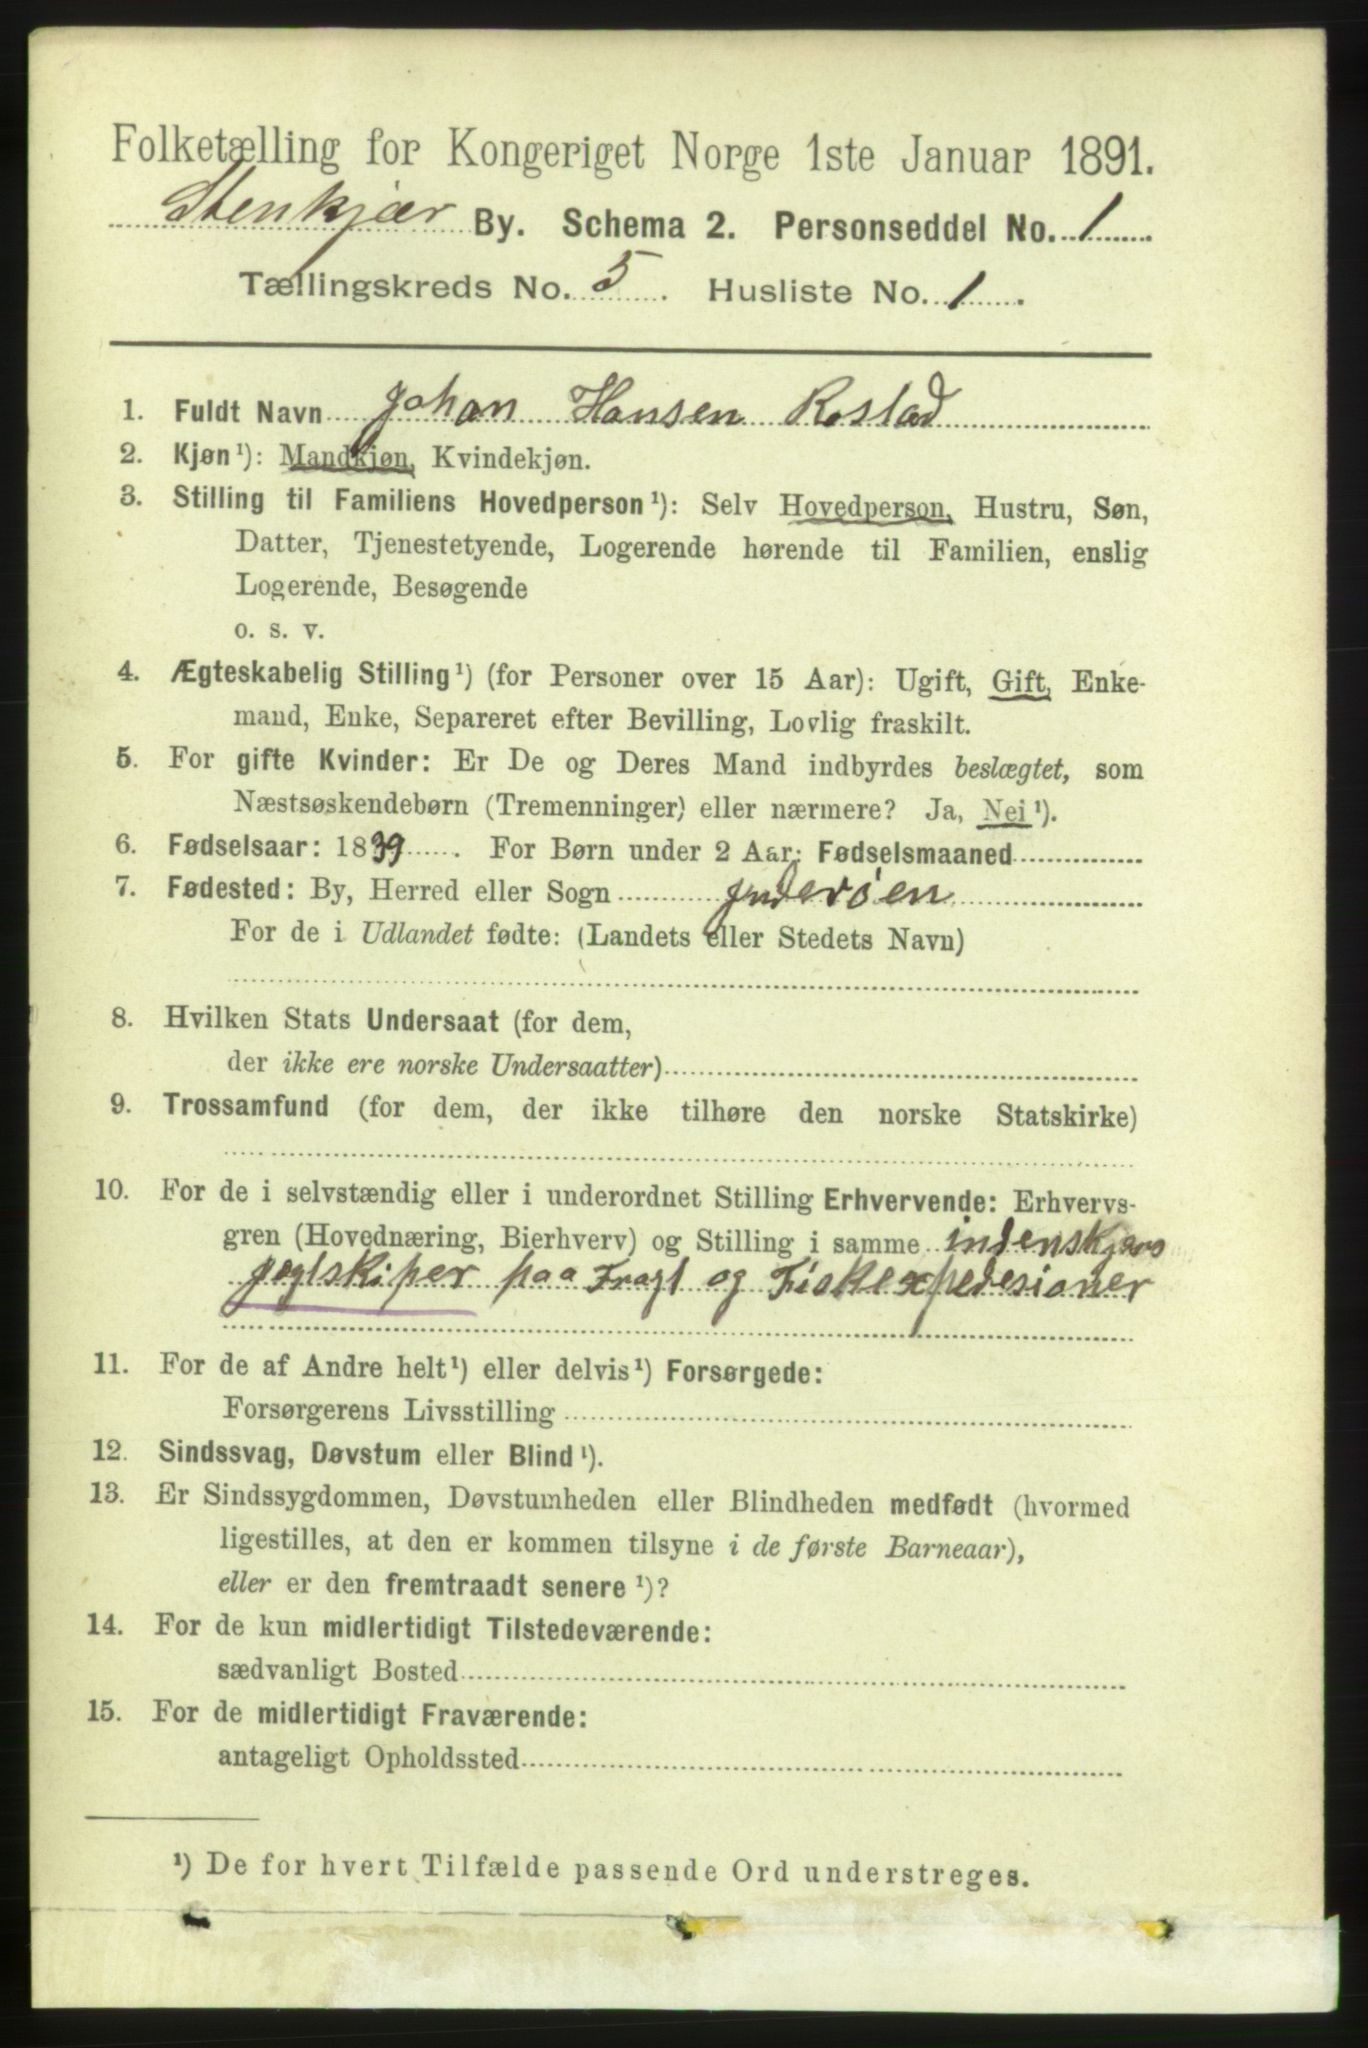 Folketælling for Kongeriget Norge 1ste Januar 1891.
Stenkjær By. Schema 2. Personseddel No. 1
Tællingskreds No. 5. Husliste No. 1.
1. Fuldt Navn Johan Hansen Rostad
2. Kjøn¹): Mandkjøn, Kvindekjøn.
3. Stilling til Familiens Hovedperson¹): Selv Hovedperson, Hustru, Søn,
Datter, Tjenestetyende, Logerende hørende til Familien, enslig
Logerende, Besøgende
o. s. v.
4. Ægteskabelig Stilling¹) (for Personer over 15 Aar): Ugift, Gift, Enke-
mand, Enke, Separeret efter Bevilling, Lovlig fraskilt.
5. For gifte Kvinder: Er De og Deres Mand indbyrdes beslægtet, som
Næstsøskendebørn (Tremenninger) eller nærmere? Ja, Nei¹).
6. Fødselsaar: 1839. For Børn under 2 Aar: Fødselsmaaned
7. Fødested: By, Herred eller Sogn Jnderøen
For de i Udlandet fødte: (Landets eller Stedets Navn)
8. Hvilken Stats Undersaat (for dem,
der ikke ere norske Undersaatter)
9. Trossamfund (for dem, der ikke tilhøre den norske Statskirke)
10. For de i selvstændig eller i underordnet Stilling Erhvervende: Erhvervs-
gren (Hovednæring, Bierhverv) og Stilling i samme indenskjærs
jogtskiper paa Fragt og Fiskexpedesioner
11. For de af Andre helt¹) eller delvis¹) Forsørgede:
Forsørgerens Livsstilling
12. Sindssvag, Døvstum eller Blind¹).
13. Er Sindssygdommen, Døvstumheden eller Blindheden medfødt (hvormed
ligestilles, at den er kommen tilsyne i de første Barneaar),
eller er den fremtraadt senere¹)?
14. For de kun midlertidigt Tilstedeværende:
sædvanligt Bosted
15. For de midlertidigt Fraværende:
antageligt Opholdssted
¹) De for hvert Tilfælde passende Ord understreges.